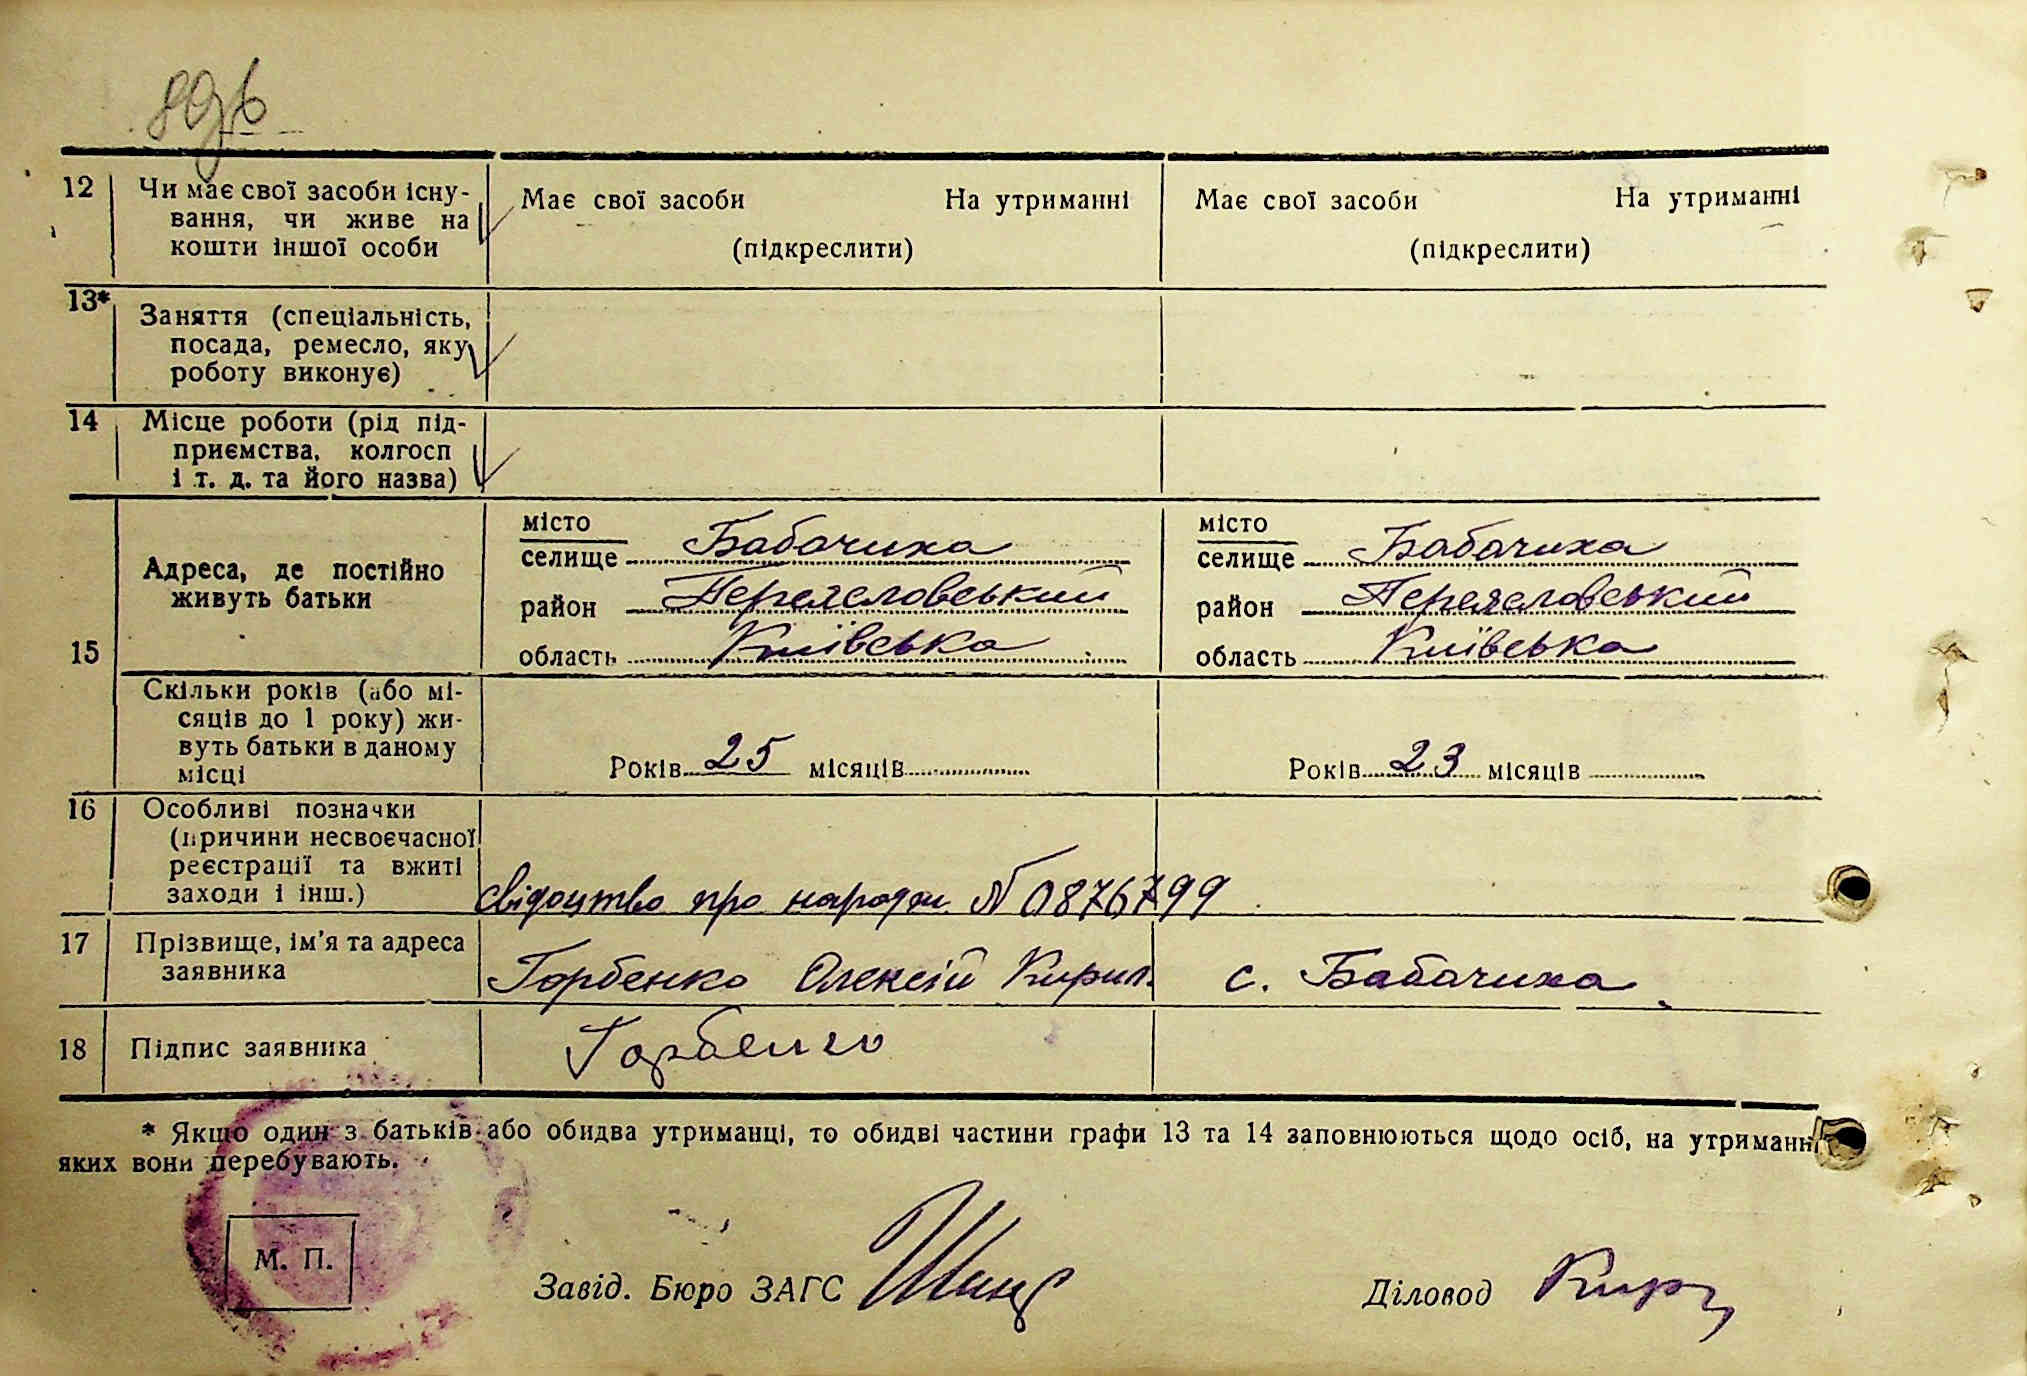 12 Чи має свої засоби існу- Має свої засоби На утриманні Має свої засоби На утриманні
вання, чи живе на
кошти іншої особи (підкреслити) (підкреслити)
13* Заняття (спеціальність,
посада, ремесло, яку
роботу виконує)
14 Місце роботи (рід під-
приємства, колгосп
і т. д. та його назва)
15
Адреса, де постійно
живуть батьки
місто
селище Бабачиха
район Переяславський
область Київська
місто
селище Бабачиха
район Переяславський
область Київська
Скільки років (або мі-
сяців до 1 року) жи-
вуть батьки в даному
місці
Років 25 місяців
Років 23 місяців
16 Особливі позначки
(причини несвоєчасної
реєстрації та вжиті
заходи і інш.)
свідоцтво про народж. N 0876799
17 Прізвище, ім'я та адреса
заявника
Горбенко Олексій Кирил. с. Бабачиха
18 Підпис заявника Горбенко
* Якщо один з батьків або обидва утриманці, то обидві частини графи 13 та 14 заповнюються щодо осіб, на утриманні
яких вони перебувають.
М. П.
Завід. Бюро ЗАГС Діловод